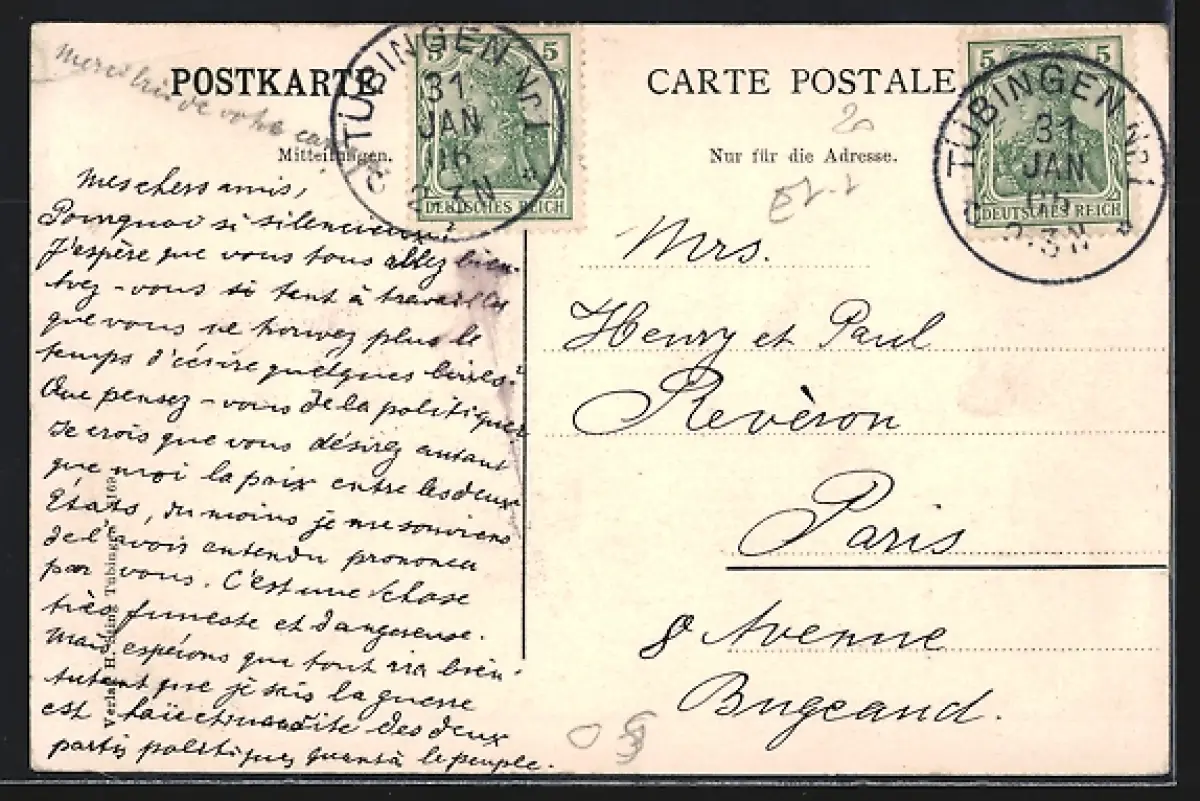 Merci bien de votre carte
POSTKARTE
CARTE POSTALE
Mitteilungen.
Nur für die Adresse.
5 5
DEUTSCHES REICH
TÜBINGEN Nr. 1
31
JAN
06
2-3 N
5 5
DEUTSCHES REICH
TÜBINGEN Nr. 1
31
JAN
06
2-3 N
Mes chers amis,
Pourquoi si silencieux?
J'espère que vous tous allez bien.
Avez-vous si tant à travailler
que vous ne trouvez plus le
temps d'écrire quelques lignes?
Que pensez-vous de la politique?
Je crois que vous désirez autant
que moi la paix entre les deux
États, du moins je me souviens
de l'avoir entendu prononcer
par vous. C'est une chose
très funeste et dangereuse.
Mais espérons que tout ira bien.
Autant que je sais la guerre
est haïe et maudite des deux
partis politiques quant à le peuple.
Verlag H. Tübingen 169
20
Mrs.
Henry et Paul
Revèron
Paris
8 Avenue
Bugeaud.